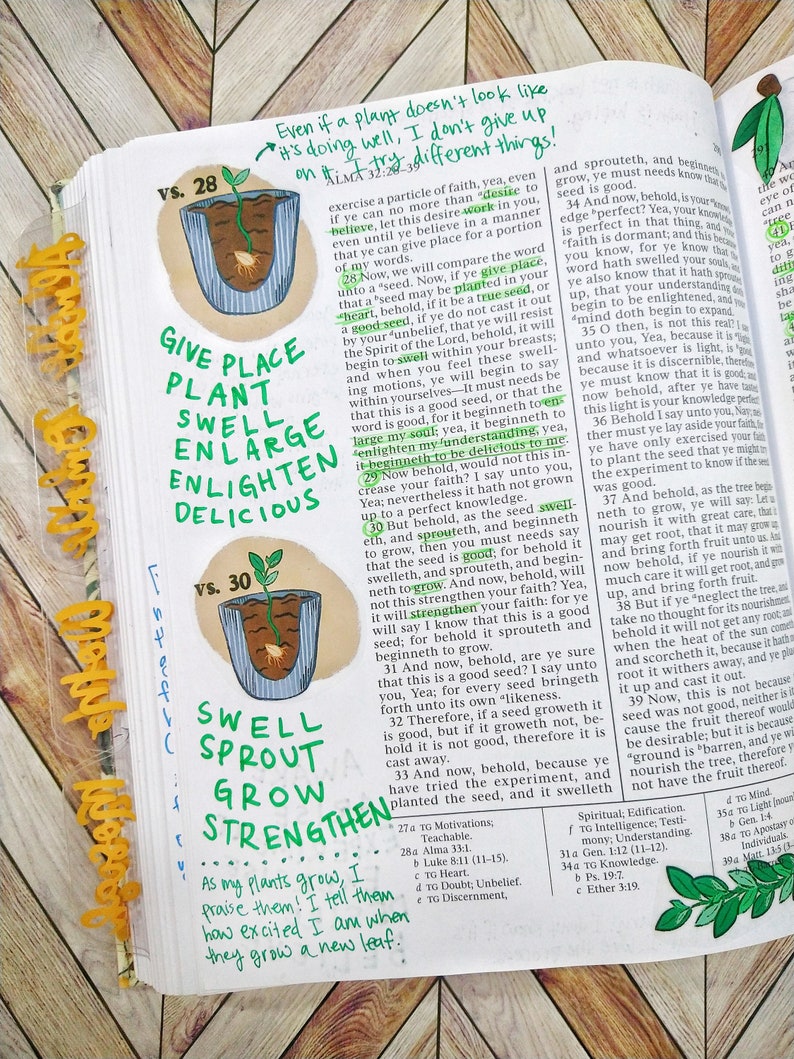 Even if a plant doesn't look like
it's doing well, I don't give up
on it. I try different things!
ALMA 32:28–39
vs. 28
GIVE PLACE
PLANT
SWELL
ENLARGE
ENLIGHTEN
DELICIOUS
vs. 30
SWELL
SPROUT
GROW
STRENGTHEN
As my plants grow, I
praise them! I tell them
how excited I am when
they grow a new leaf.
exercise a particle of faith, yea, even
if ye can no more than a desire to
believe, let this desire work in you,
even until ye believe in a manner
that ye can give place for a portion
of my words.
28 Now, we will compare the word
unto a a seed. Now, if ye give place,
that a b seed may be planted in your
c heart, behold, if it be a true seed, or
a good seed, if ye do not cast it out
by your d unbelief, that ye will resist
the Spirit of the Lord, behold, it will
begin to swell within your breasts;
and when you feel these swell-
ing motions, ye will begin to say
within yourselves—It must needs be
that this is a good seed, or that the
word is good, for it beginneth to en-
large my soul; yea, it beginneth to
e enlighten my f understanding, yea,
it beginneth to be delicious to me.
29 Now behold, would not this in-
crease your faith? I say unto you,
Yea; nevertheless it hath not grown
up to a perfect knowledge.
30 But behold, as the seed swell-
eth, and sprouteth, and beginneth
to grow, then you must needs say
that the seed is good; for behold it
swelleth, and sprouteth, and begin-
neth to grow. And now, behold, will
not this strengthen your faith? Yea,
it will strengthen your faith: for ye
will say I know that this is a good
seed; for behold it sprouteth and
beginneth to grow.
31 And now, behold, are ye sure
that this is a good seed? I say unto
you, Yea; for every seed bringeth
forth unto its own a likeness.
32 Therefore, if a seed groweth it
is good, but if it groweth not, be-
hold it is not good, therefore it is
cast away.
33 And now, behold, because ye
have tried the experiment, and
planted the seed, and it swelleth
and sprouteth, and beginneth to
grow, ye must needs know that the
seed is good.
34 And now, behold, is your a know-
ledge b perfect? Yea, your knowledge
is perfect in that thing, and your
c faith is dormant; and this because
you know, for ye know that the
word hath swelled your souls, and
ye also know that it hath sprouted
up, that your understanding doth
begin to be enlightened, and your
d mind doth begin to expand.
35 O then, is not this real? I say
unto you, Yea, because it is a light;
and whatsoever is light, is b good,
because it is discernible, therefore
ye must know that it is good; and
now behold, after ye have tasted
this light is your knowledge perfect?
36 Behold I say unto you, Nay; nei-
ther must ye lay aside your faith, for
ye have only exercised your faith
to plant the seed that ye might try
the experiment to know if the seed
was good.
37 And behold, as the tree begin-
neth to grow, ye will say: Let us
nourish it with great care, that it
may get root, that it may grow up,
and bring forth fruit unto us. And
now behold, if ye nourish it with
much care it will get root, and grow
up, and bring forth fruit.
38 But if ye a neglect the tree, and
take no thought for its nourishment,
behold it will not get any root; and
when the heat of the sun cometh
and scorcheth it, because it hath no
root it withers away, and ye pluck
it up and cast it out.
39 Now, this is not because
seed was not good, neither is it
cause the fruit thereof would
be desirable; but it is because
a ground is b barren, and ye will
nourish the tree, therefore ye
not have the fruit thereof.
27a TG Motivations;
Teachable.
28a Alma 33:1.
b Luke 8:11 (11–15).
c TG Heart.
d TG Doubt; Unbelief.
e TG Discernment,
Spiritual; Edification.
f TG Intelligence; Testi-
mony; Understanding.
31a Gen. 1:12 (11–12).
34a TG Knowledge.
b Ps. 19:7.
c Ether 3:19.
d TG Mind.
35a TG Light [noun]
b Gen. 1:4.
38a TG Apostasy of
Individuals.
39a Matt. 13:5 (3–
291
40
41